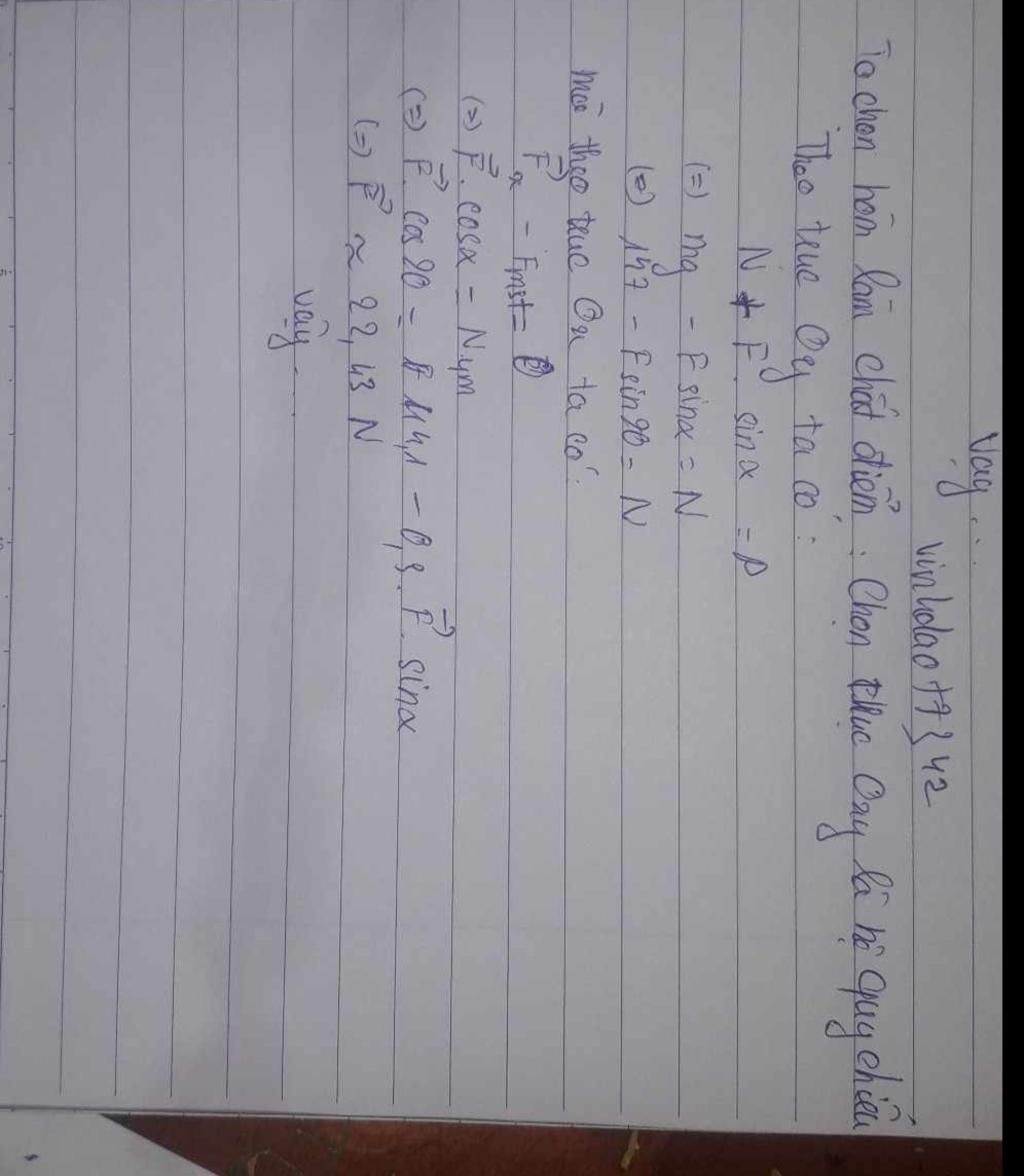 Vậy...
vinhdao773342
Ta chọn hòn làm chất điểm. Chọn trục Oxy là hệ quy chiếu
Theo trục Oy ta có:
N + F. sinα = P
(=) mg - F sinα = N
(=) 147 - F sin20 = N
Theo trục Ox ta có:
Fx - Fmst = 0
(=) F. cosα = N.μm
(=) F. cos20 = - 0,3. F. sinα
(=) F ≈ 22,43 N
Vậy...